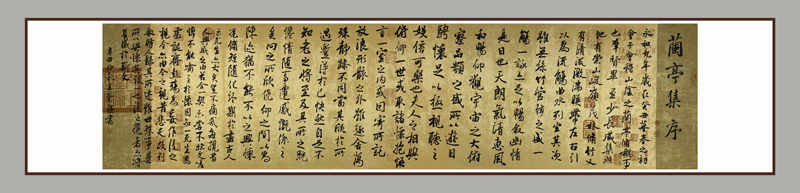 蘭亭集序
永和九年歲在癸丑暮春之初
會于會稽山陰之蘭亭脩禊事
也羣賢畢至少長咸集此
地有崇山峻領茂林脩竹又
有清流激湍映帶左右引
以為流觴曲水列坐其次
雖無絲竹管弦之盛一
觴一詠亦足以暢敘幽情
是日也天朗氣清惠風
和暢仰觀宇宙之大俯
察品類之盛所以遊目
騁懷足以極視聽之
娛信可樂也夫人之相與
俯仰一世或取諸懷抱悟
言一室之內或因寄所託
放浪形骸之外雖趣舍萬
殊靜躁不同當其欣於所
遇蹔得於己快然自足不
知老之將至及其所之既
惓情隨事遷感慨係之
矣向之所欣俛仰之間以為
陳迹猶不能不以之興懷
況脩短隨化終期於盡古人
云死生亦大矣豈不痛哉每覽昔
人興感之由若合一契未嘗不臨文嗟
悼不能喻之於懷固知一死生為
虛誕齊彭殤為妄作後之
視今亦由今之視昔悲夫故列
敘時人錄其所述雖世殊事異
所以興懷其致一也後之覽者亦將
有感於斯文